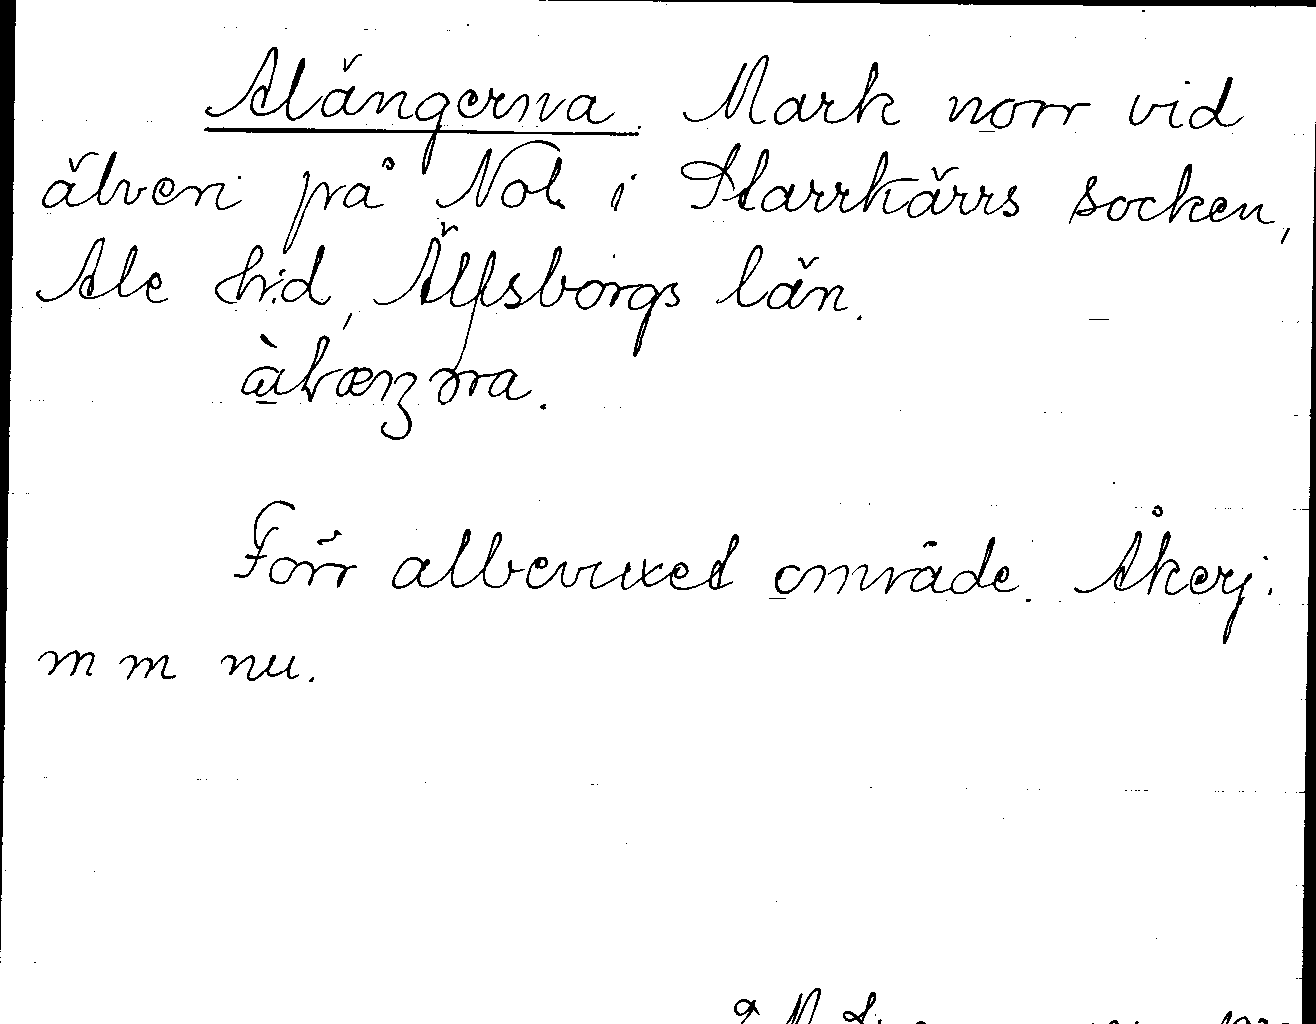 Alängerna. Mark norr vid
älven på Nol i Starrkärrs socken,
Ale hrd, Älfsborgs län.
Förr albevuxet område. Åkerj.
m m nu.